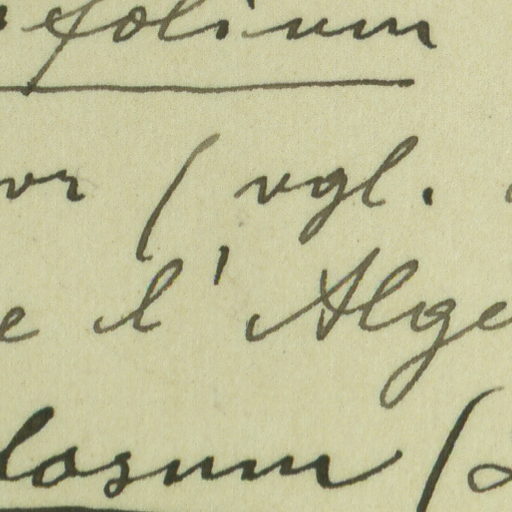 folium
or ( vgl.
e l'Alge
losum (